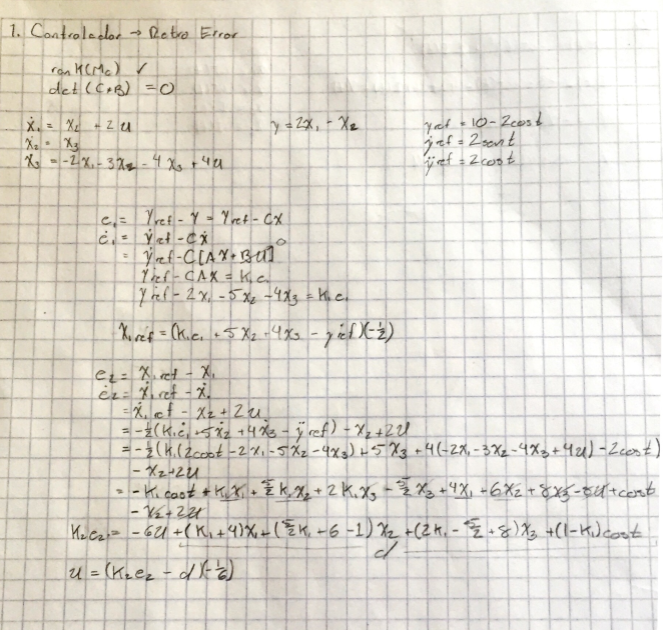 1. Controlador → Retro Error
rank(Mc) ✓
det (C*B) = 0
ẋ₁ = x₂ + 2u        y = 2x₁ - x₂        yref = 10 - 2cost
ẋ₂ = x₃        ẏref = 2sent
ẋ₃ = -2x₁ - 3x₂ - 4x₃ + 4u        ÿref = 2cost
e₁ = Yref - Y = Yref - CX
ė₁ = ẏref - Cẋ
= ẏref - C[AX + BU]⁰
ẏref - CAX = K₁e₁
ẏref - 2x₁ - 5x₂ - 4x₃ = K₁e₁
X₁ref = (K₁e₁ + 5x₂ + 4x₃ - ẏref)(-½)
e₂ = X₁ref - X₁
ė₂ = ẋ₁ref - ẋ₁
= ẋ₁ref - x₂ + 2u
= -½(K₁ė₁ + 5ẋ₂ + 4ẋ₃ - ÿref) - x₂ + 2u
= -½(K₁(2cost - 2x₁ - 5x₂ - 4x₃) + 5x₃ + 4(-2x₁ - 3x₂ - 4x₃ + 4u) - 2cost)
- x₂ + 2u
= -K₁cost + K₁x₁ + 5/2 K₁x₂ + 2K₁x₃ - 5/2 x₃ + 4x₁ + 6x₂ + 8x₃ - 8u + cost
- x₂ + 2u
K₂e₂ = -6u + (K₁ + 4)x₁ + (5/2 K₁ + 6 - 1)x₂ + (2K₁ - 5/2 + 8)x₃ + (1 - K₁)cost
d
u = (K₂e₂ - d)(-1/6)